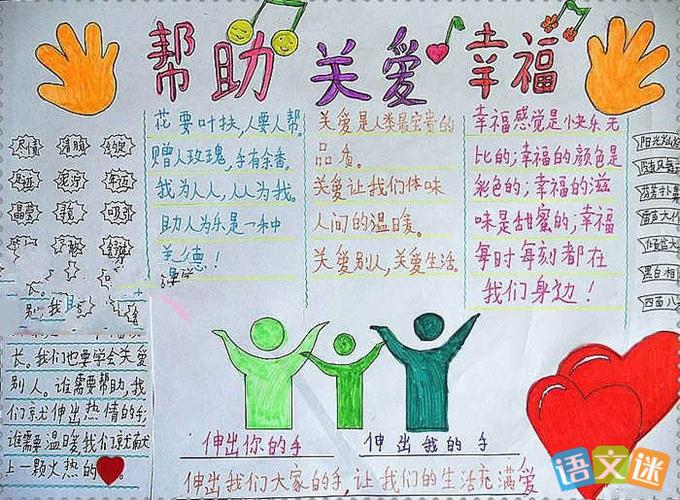 帮助 关爱 幸福
花要叶扶,人要人帮。
赠人玫瑰,手有余香。
我为人人,人人为我。
助人为乐是一种
美德!
关爱是人类最宝贵的
品质。
关爱让我们体味
人间的温暖。
关爱别人,关爱生活。
幸福感觉是快乐无
比的;幸福的颜色是
彩色的;幸福的滋
味是甜蜜的,幸福
每时每刻都在
我们身边!
尽情
温馨
长。我们也要学会关爱
别人。谁需要帮助,我
们就伸出热情的手;
谁需要温暖我们就献
上一颗火热的
伸出你的手 伸出我的手
伸出我们大家的手,让我们的生活充满爱
黑白相
语文迷